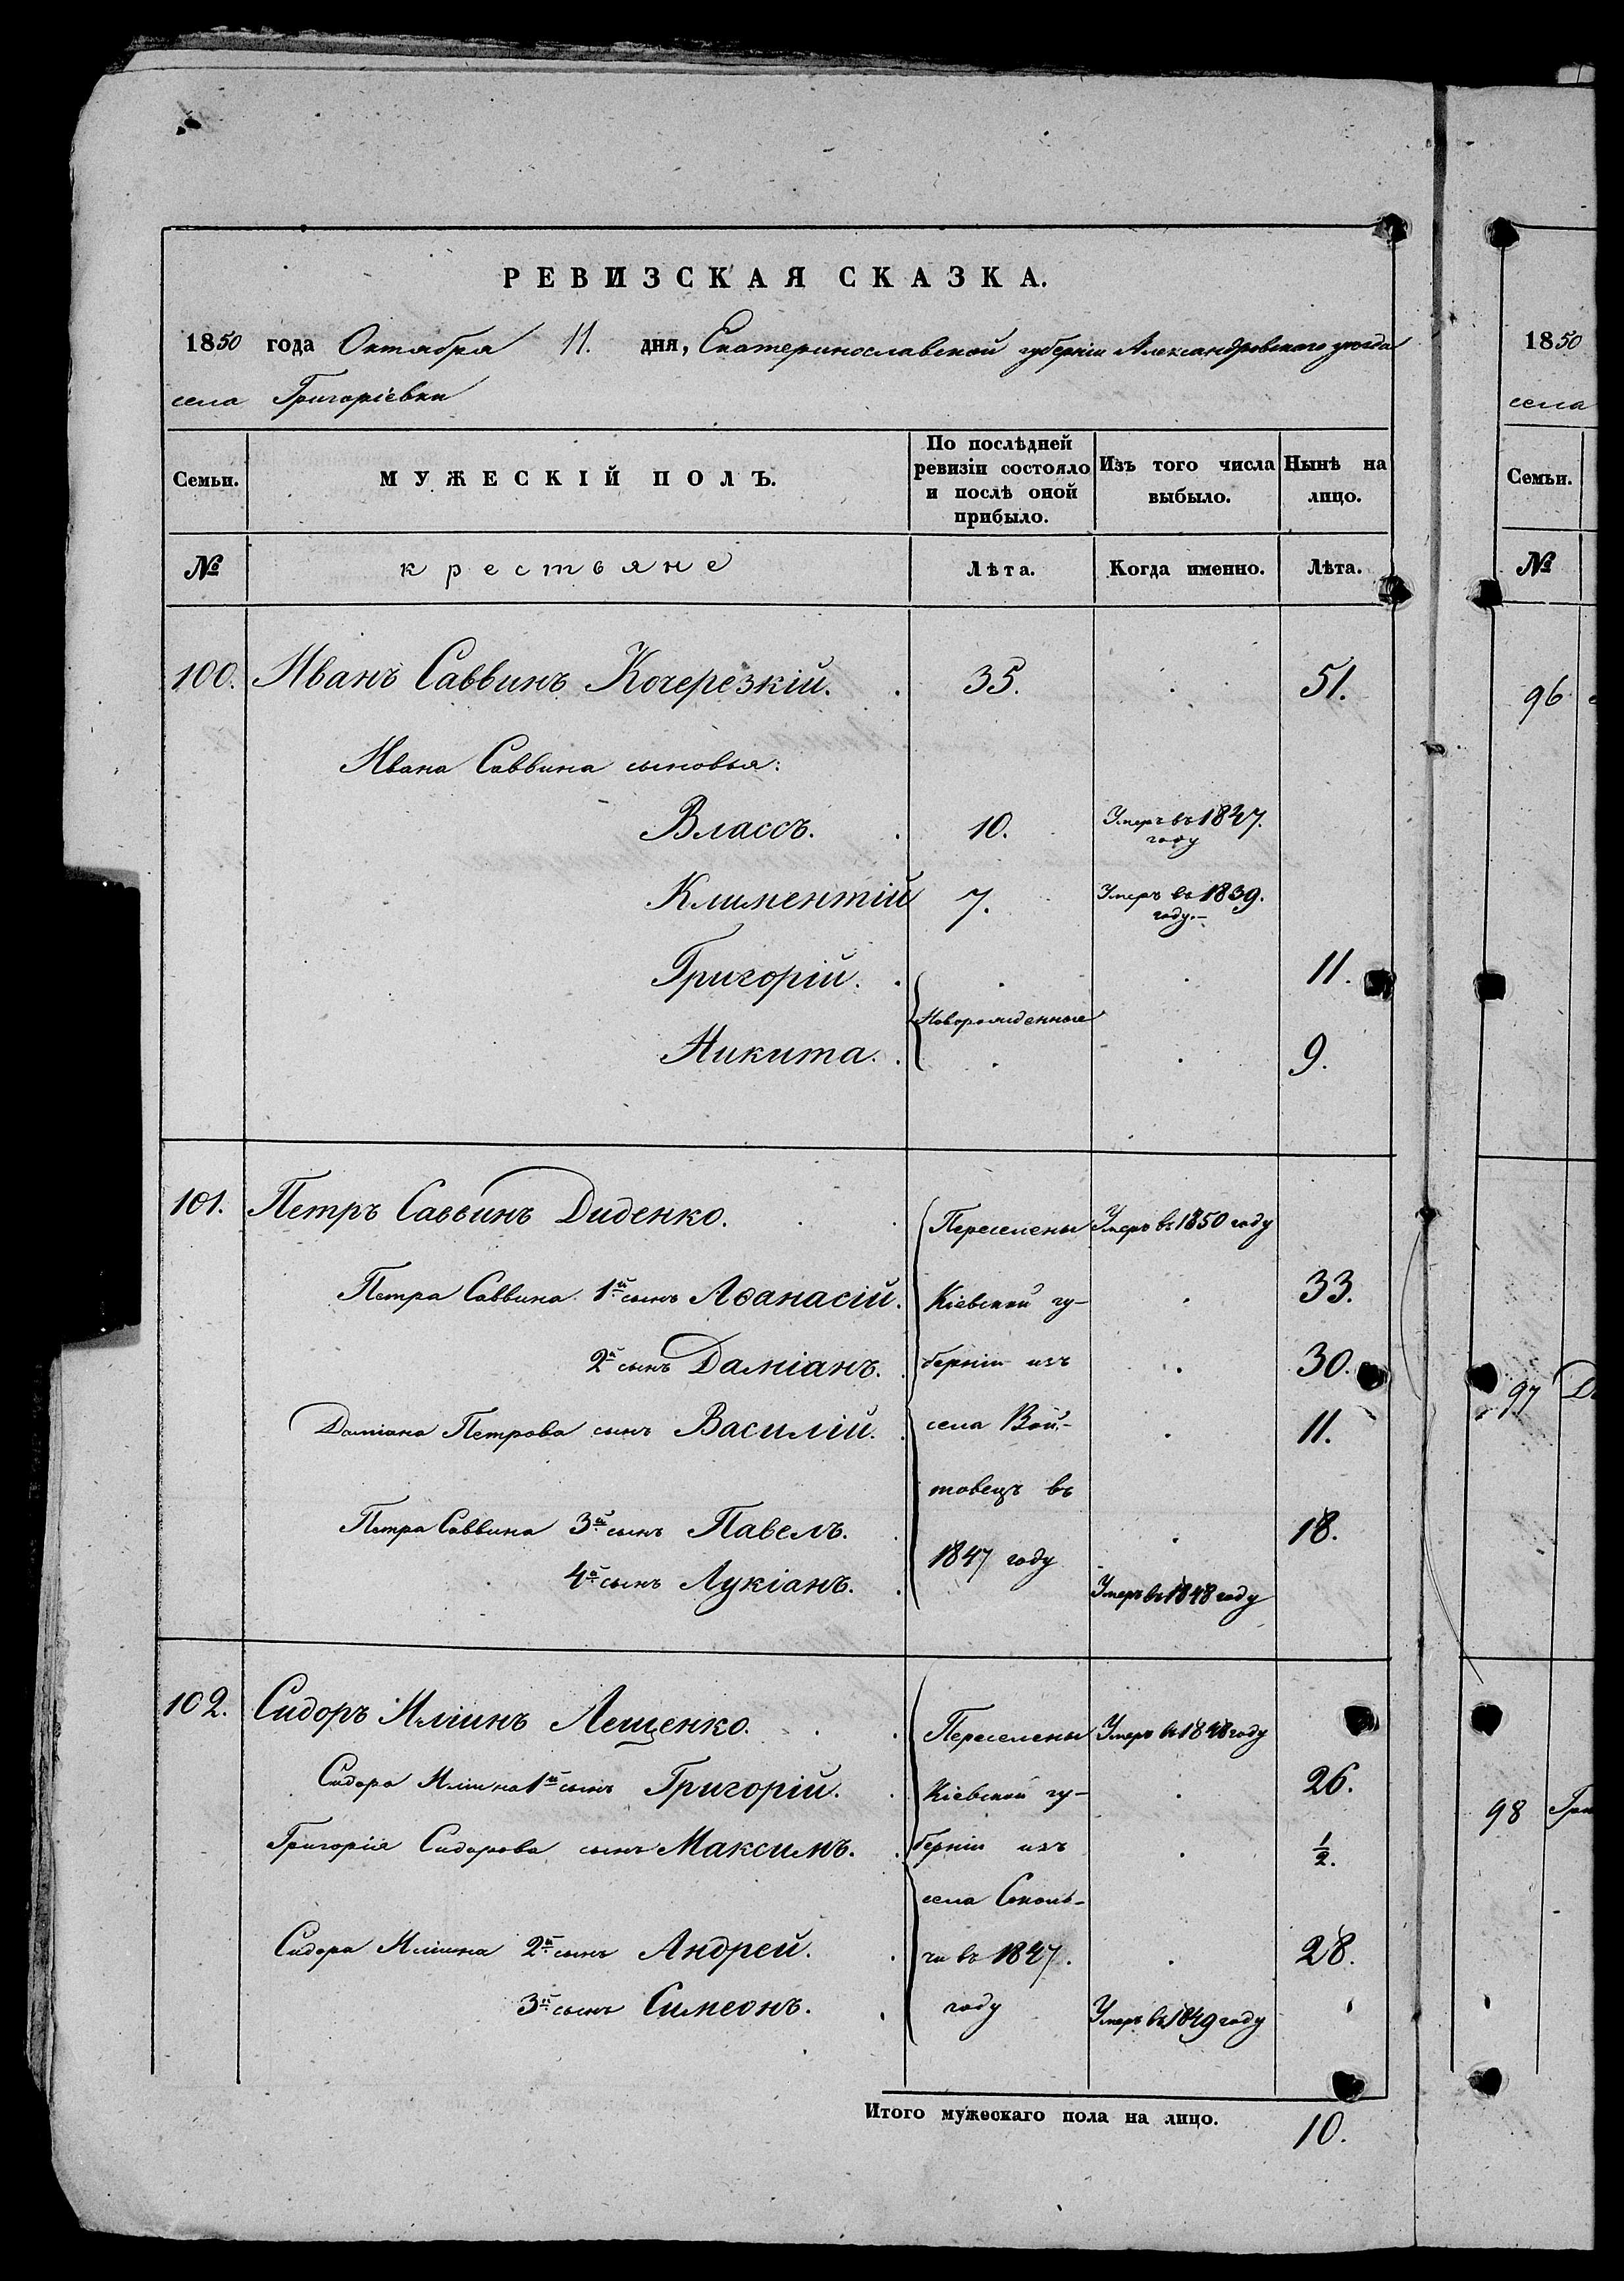 РЕВИЗСКАЯ СКАЗКА.
1850 года Октября 11. дня, Екатеринославской губерніи Александровскаго уѣзда
села Григоріевки
Семьи. МУЖЕСКІЙ ПОЛЪ. По послѣдней ревизіи состояло и послѣ оной прибыло. Изъ того числа выбыло. Нынѣ на лицо.
№ крестьяне Лѣта. Когда именно. Лѣта.
100. Иванъ Саввинъ Кочерезкій. 35. 51.
Ивана Саввина сыновья:
Влассъ. 10. Умеръ въ 1847. году
Климентій 7. Умеръ въ 1839. году.
Григорій. 11.
Новорожденные
Никита. 9.
101. Петръ Саввинъ Диденко. Переселены Умеръ въ 1850 году
Петра Саввина 1й сынъ Аѳанасій. Кіевской гу- 33.
2й сынъ Даміанъ. берніи изъ 30.
Даміана Петрова сынъ Василій. села Вой- 11.
товецъ въ
Петра Саввина 3й сынъ Павелъ. 18.
1847 году
4й сынъ Лукіанъ. Умеръ въ 1848 году
102. Сидоръ Иліинъ Лещенко. Переселены Умеръ въ 1848 году
Сидора Иліина 1й сынъ Григорій. Кіевской гу- 26.
Григорія Сидорова сынъ Максимъ. берніи изъ 1/2.
села Сколь-
Сидора Иліина 2й сынъ Андрей. чи въ 1847. 28.
3й сынъ Симеонъ. году Умеръ въ 1849 году
Итого мужескаго пола на лицо. 10.
1850
села
Семьи.
№
96
97
98